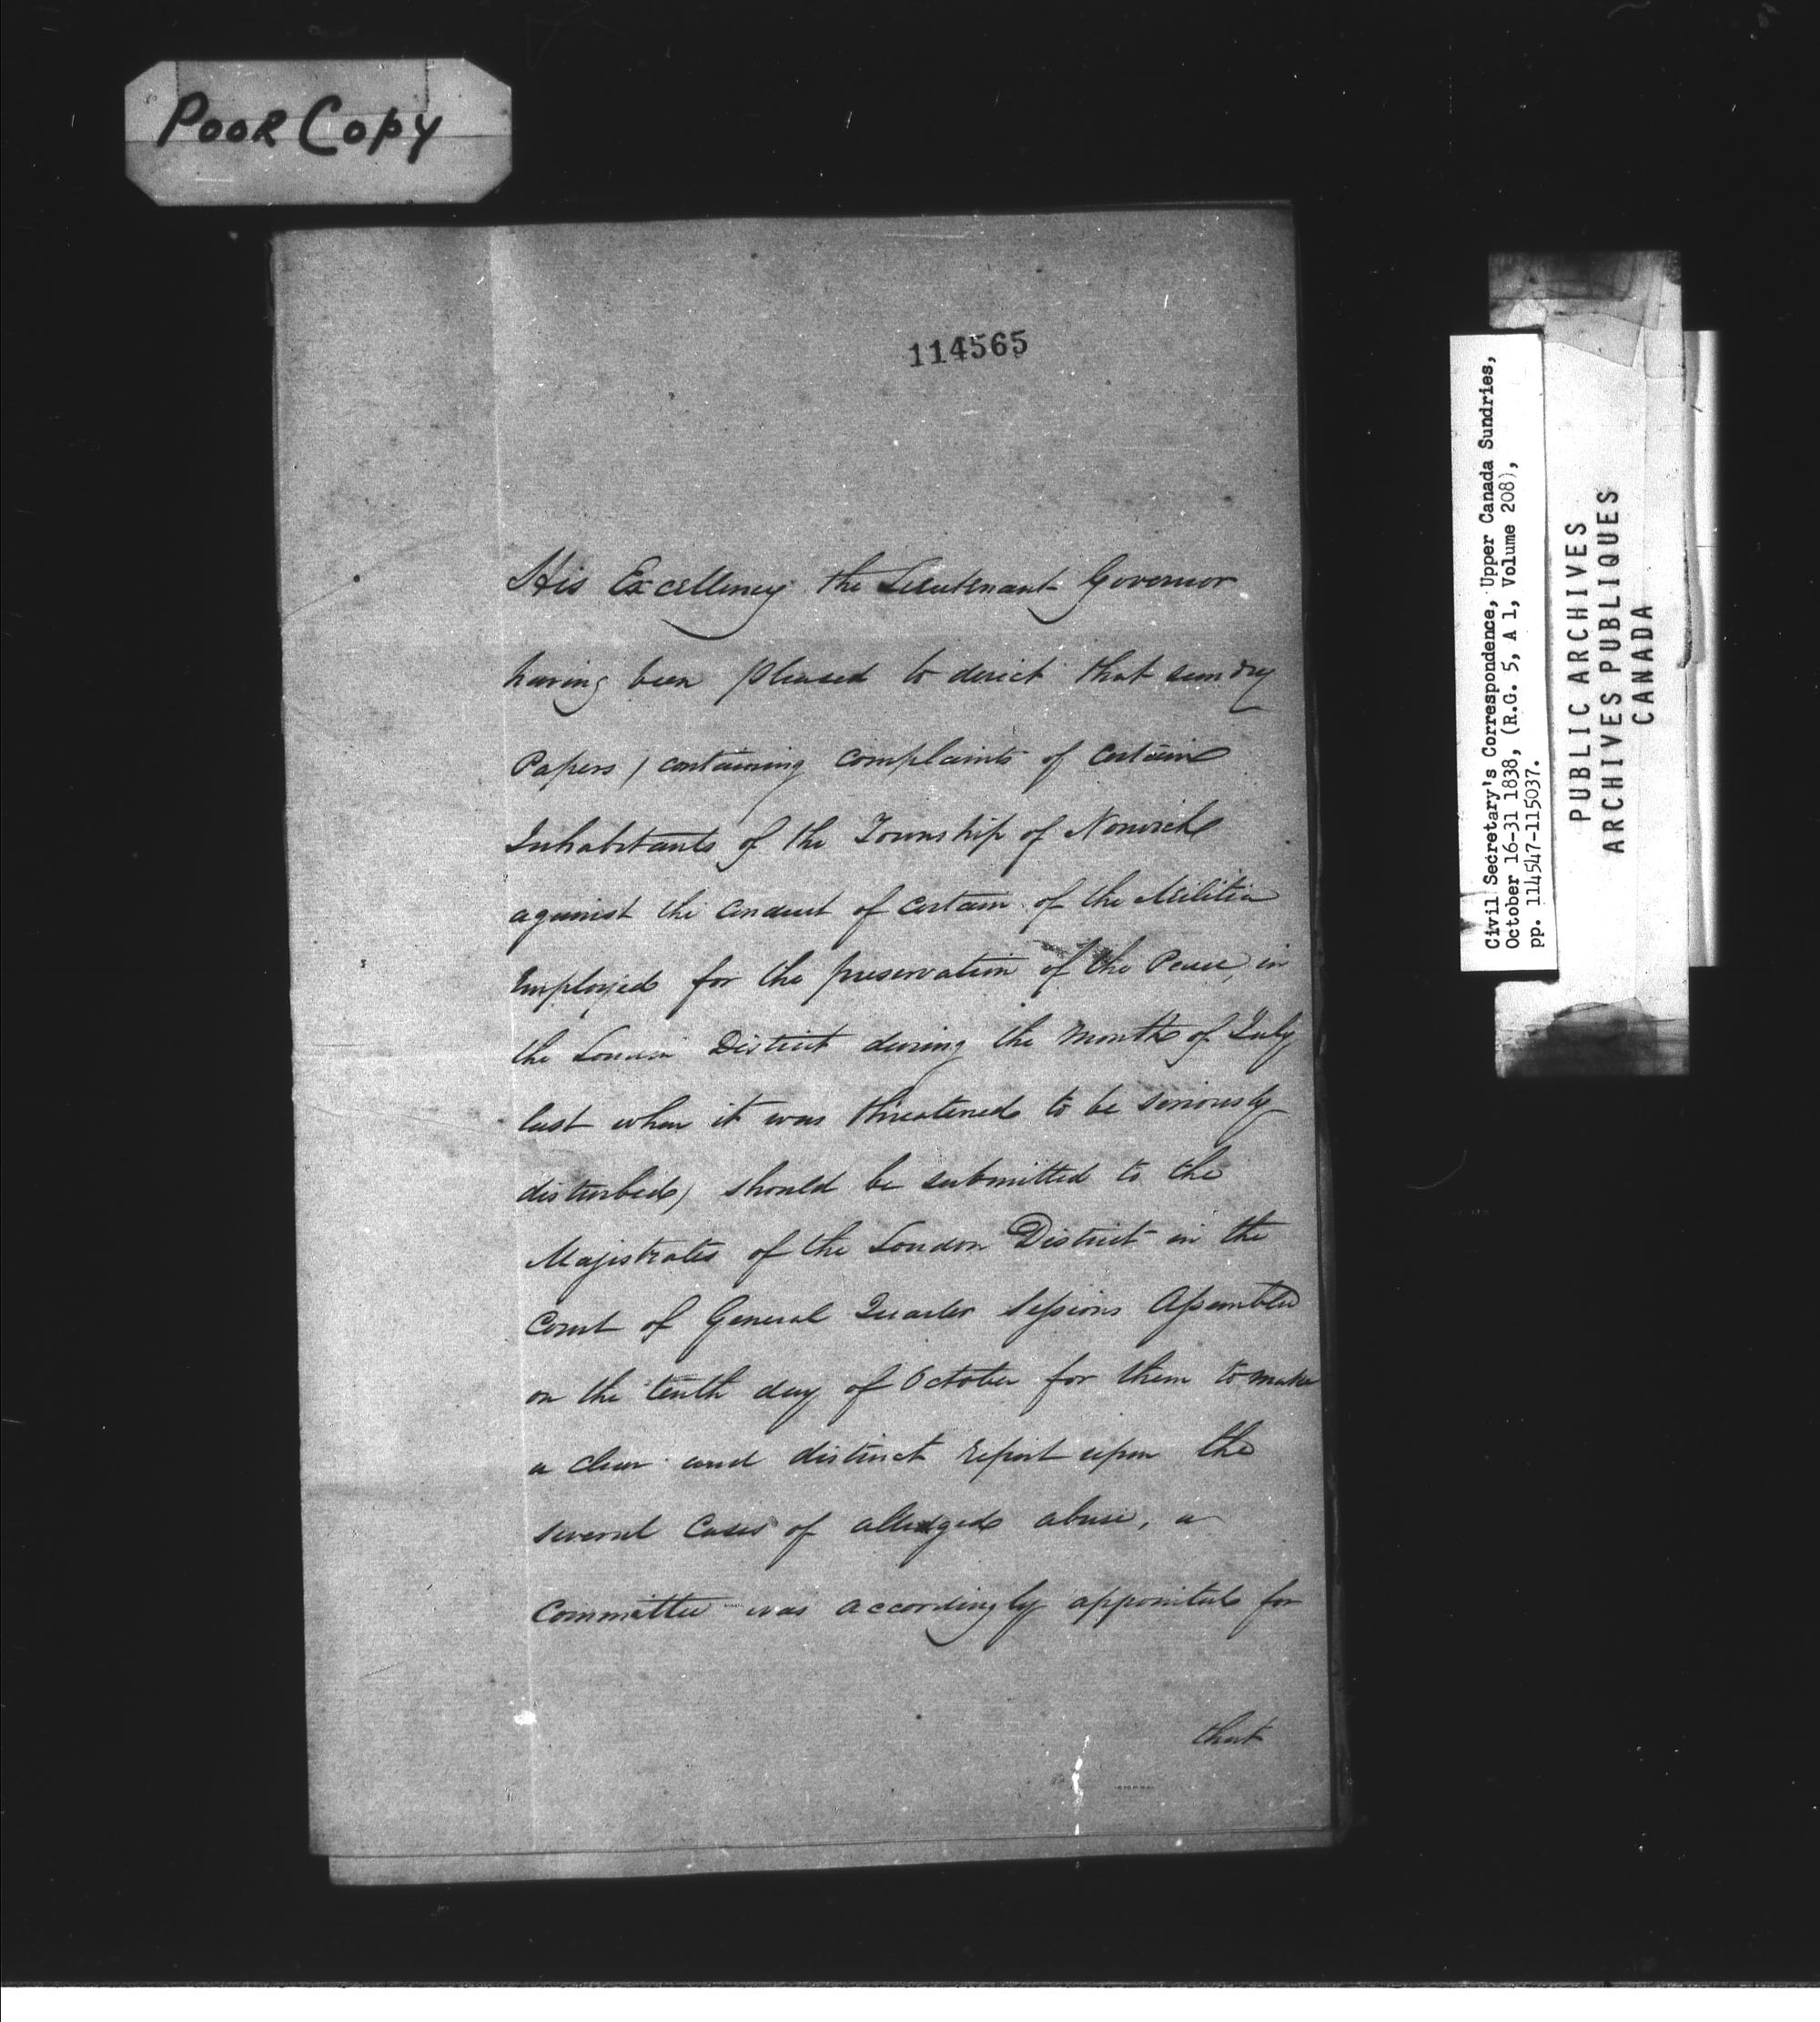 Poor Copy
114565
His Excellency the Lieutenant Governor
having been pleased to direct that sundry
Papers (containing complaints of certain
Inhabitants of the Township of Norwich
against the conduct of certain of the Militia
employed for the preservation of the Peace, in
the London District during the month of July
last when it was threatened to be seriously
disturbed) should be submitted to the
Magistrates of the London District in the
Court of General Quarter Sessions Assembled
on the tenth day of October for them to make
a clear and distinct report upon the
several Cases of alledged abuse, a
Committee was accordingly appointed for
that
Civil Secretary's Correspondence, Upper Canada Sundries,
October 16-31 1838, (R.G. 5, A 1, Volume 208),
pp. 114547-115037.
PUBLIC ARCHIVES
ARCHIVES PUBLIQUES
CANADA